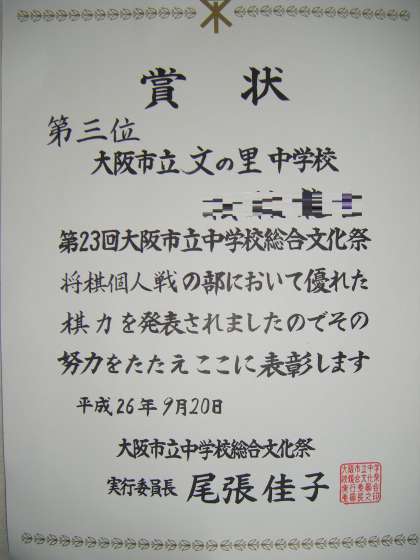 賞状
第三位
大阪市立文の里中学校
第23回大阪市立中学校総合文化祭
将棋個人戦の部において優れた
棋力を発表されましたのでその
努力をたたえここに表彰します
平成26年9月20日
大阪市立中学校総合文化祭
実行委員長 尾張佳子